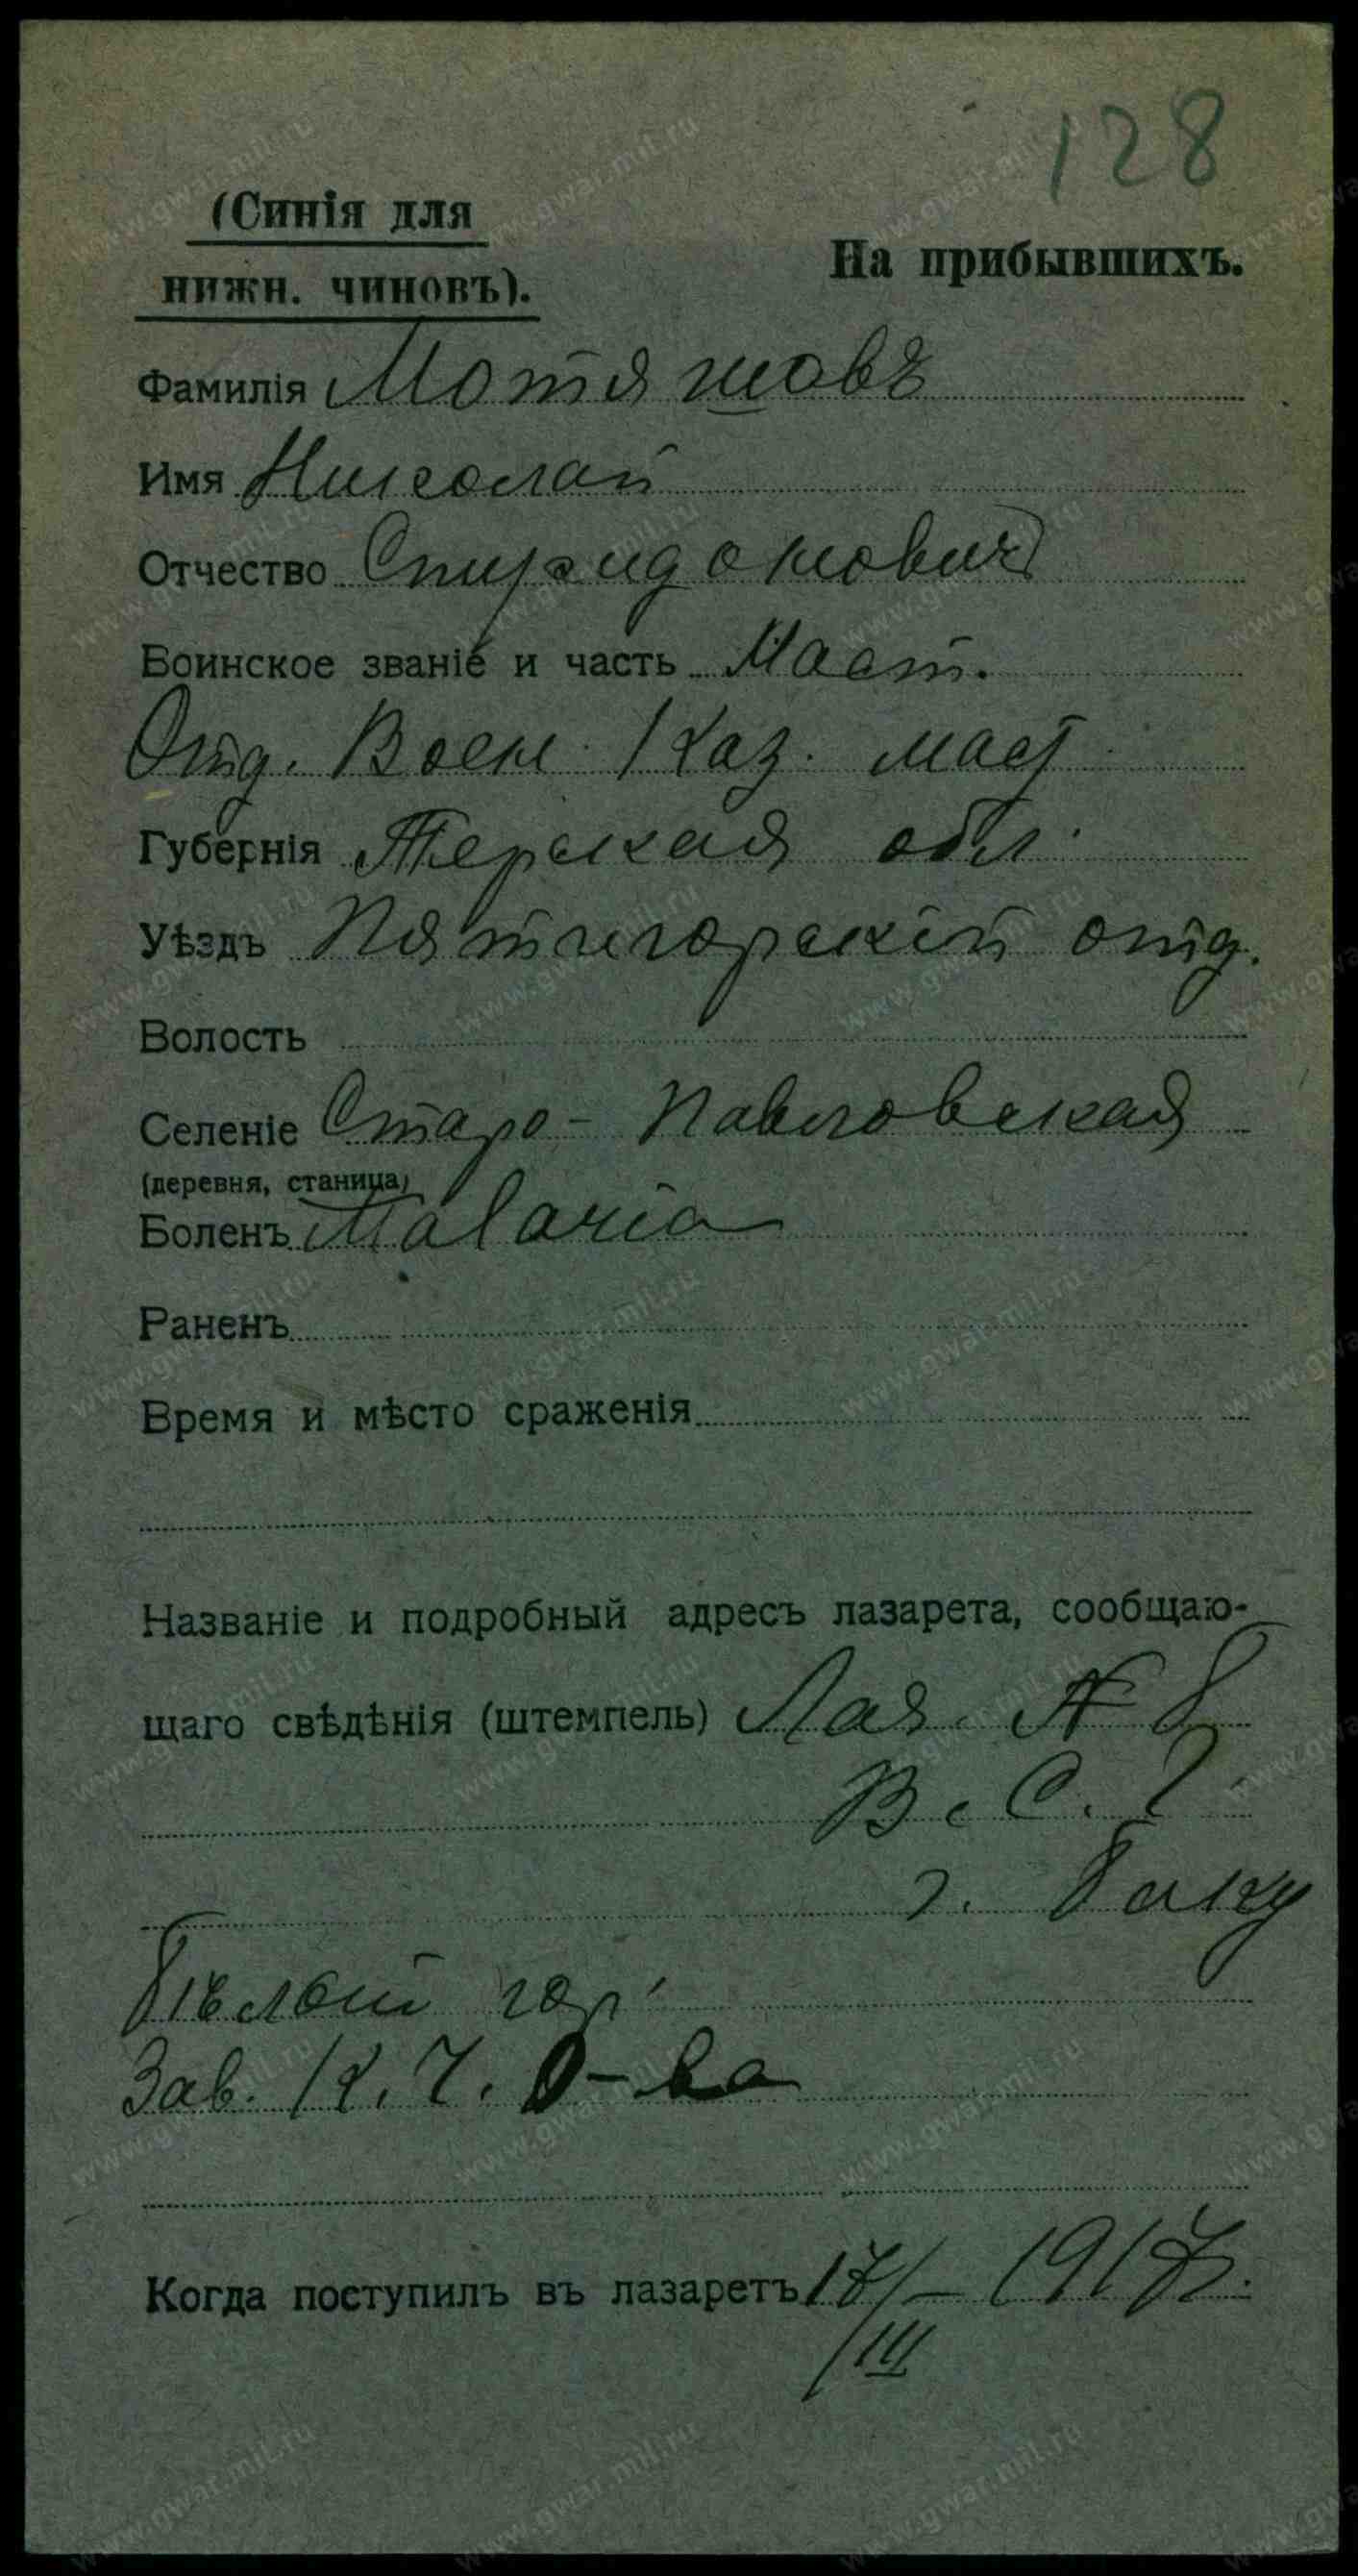 128
(Синія для
нижн. чиновъ).
На прибывшихъ.
Фамилія Мотяшовъ
Имя Николай
Отчество Спиридоновичъ
Воинское званіе и часть Маст.
Отд. Воен. Каз. маст.
Губернія Терская обл.
Уѣздъ Пятигорскій отд.
Волость
Селеніе Старо-Павловская
(деревня, станица)
Боленъ Malaria
Раненъ
Время и мѣсто сраженія
Названіе и подробный адресъ лазарета, сообщаю-
щаго свѣдѣнія (штемпель) Лаз. № 8
В. С. Г.
г. Баку
Бѣлый гор.
Зав. К. Ч. О-ва
Когда поступилъ въ лазаретъ 17/III – 1917 г.